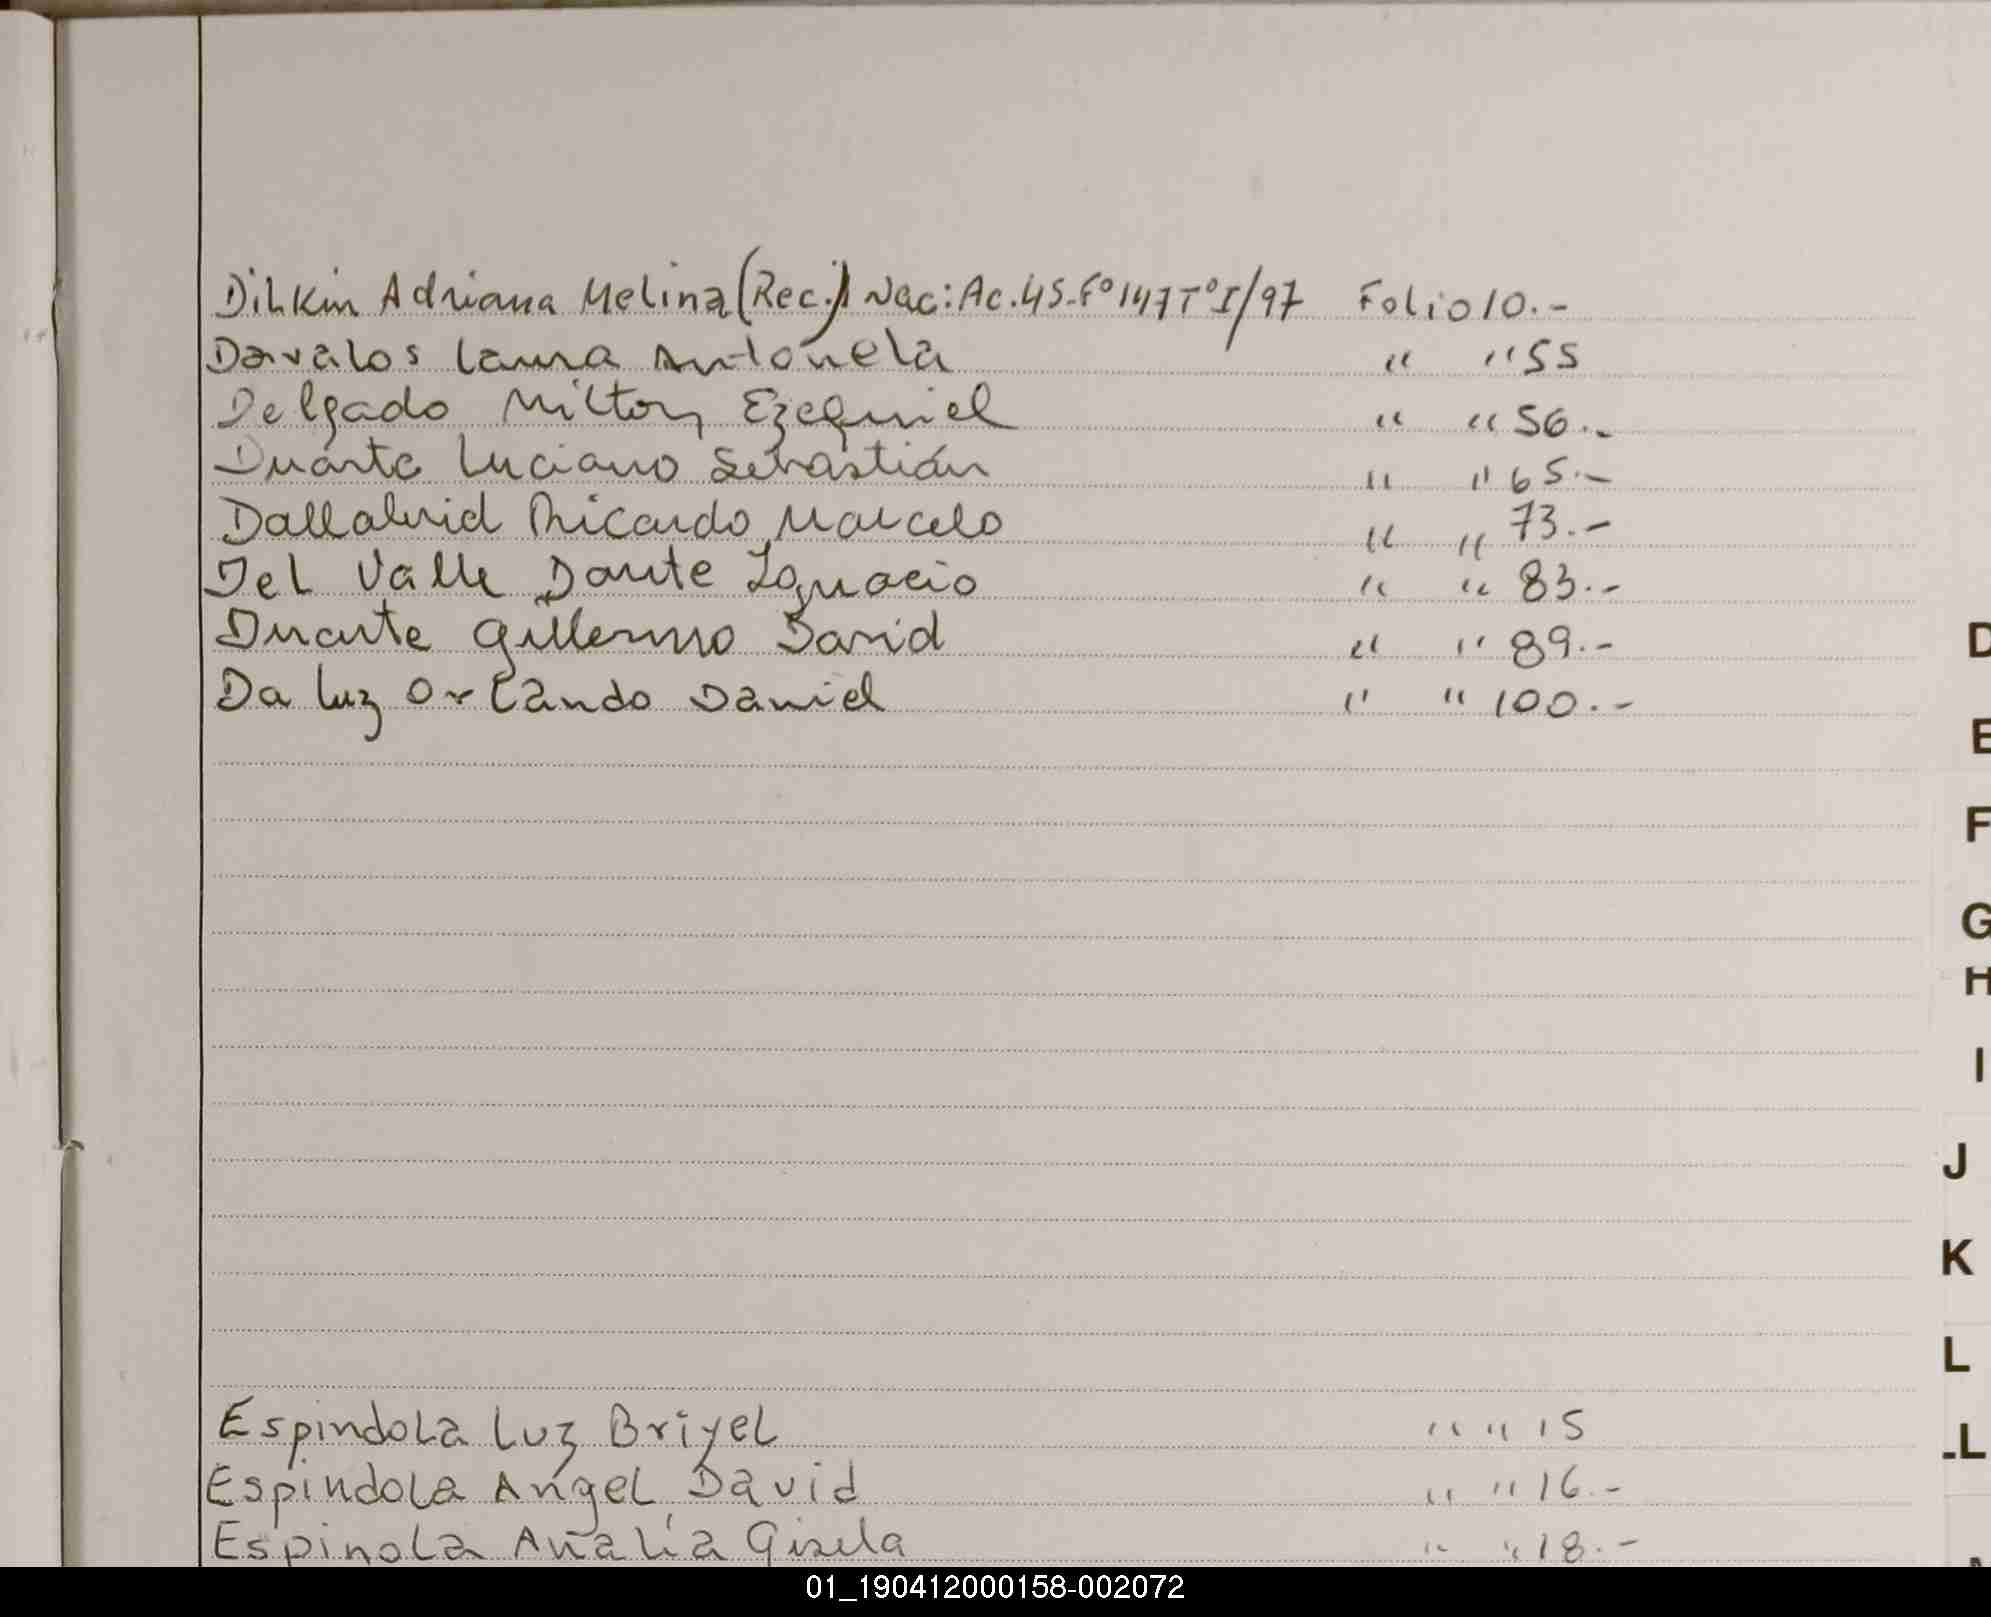 Dihkin Adriana Melina (Rec.) Nac: Ac. 45-Fº147TºI/97 Folio 10.-
Davalos Laura Antonela " " 55
Delgado Milton Ezequiel " " 56.-
Duarte Luciano Sebastián " " 65.-
Dallabrid Ricardo Marcelo " " 73.-
Del Valle Dante Ignacio " " 83.-
Duarte Gillermo David " " 89.-
Da Luz Orlando Daniel " " 100.-
D
E
F
G
H
I
J
K
L
LL
Espindola Luz Briyel " " 15
Espindola Angel David " " 16.-
Espinola Analía Gisela " " 18.-
01_190412000158-002072